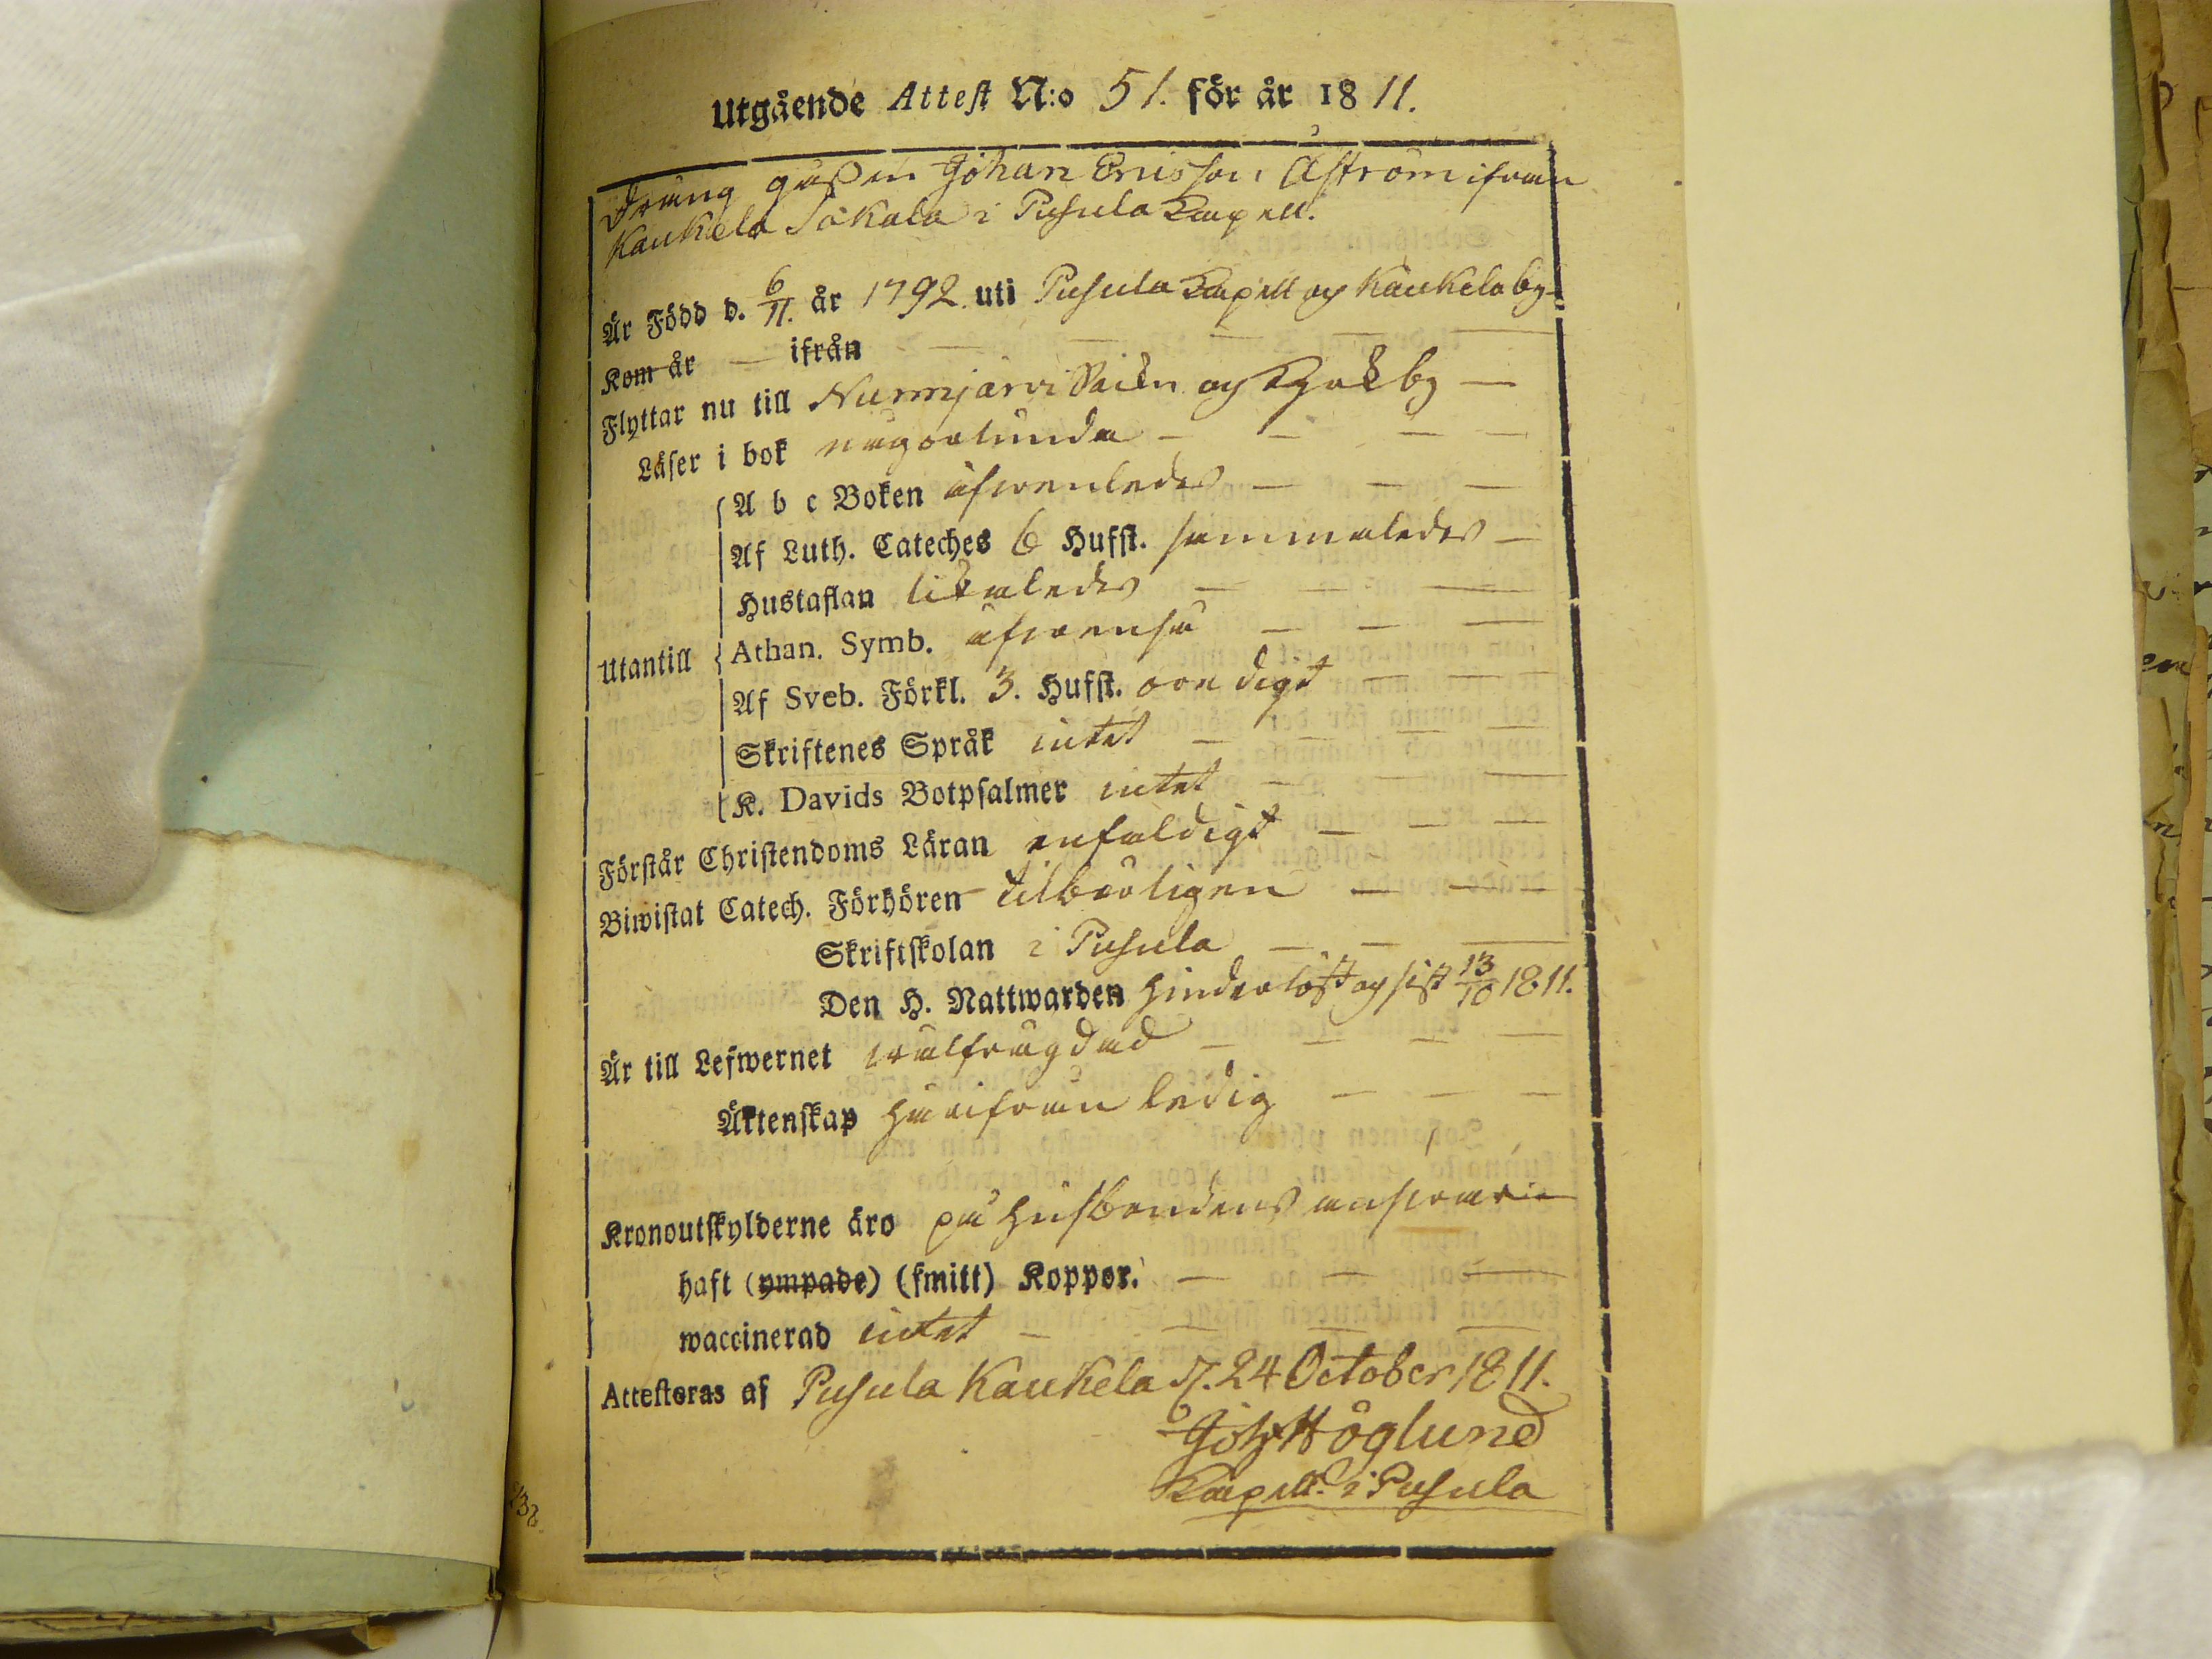 Utgående Attest N:o 51. för år 1811.
Dräng gåssen Johan Ericsson Åström ifrån
Kaukela Sakala i Pusula Capell.
Är Född d. 6/11. år 1792. uti Pusula Capell och Kaukela by
Kom år — ifrån — — — —
Flyttar nu till Nurmjärvi Sockn och Kyrkby —
Läser i bok någorlunda — — — —
A b c Boken äfwenledes — — —
Af Luth. Cateches 6 Hufst. sammaledes —
Hustaflan likaledes — — —
Utantill
Athan. Symb. äfwenså — — —
Af Sveb. Förkl. 3. Hufst. oredigt — — —
Skriftenes Språk intet — — — —
K. Davids Botpsalmer intet — — —
Förstår Christendoms Läran enfaldigt — — —
Biwistat Catech. Förhören tilbörligen — — —
Skriftskolan i Pusula — — —
Den H. Nattwarden hinderlöst och sist 13/10 1811.
Är till Lefwernet wälfrägdad — — — —
Äktenskap härifrån ledig — — —
Kronoutskylderne äro på husbondens answar
haft (ympade) (smitt) Koppor. — — —
waccinerad intet — — — —
Attesteras af Pusula Kaukela d. 24 October 1811.
Joh Höglund
Capell. i Pusula
238.